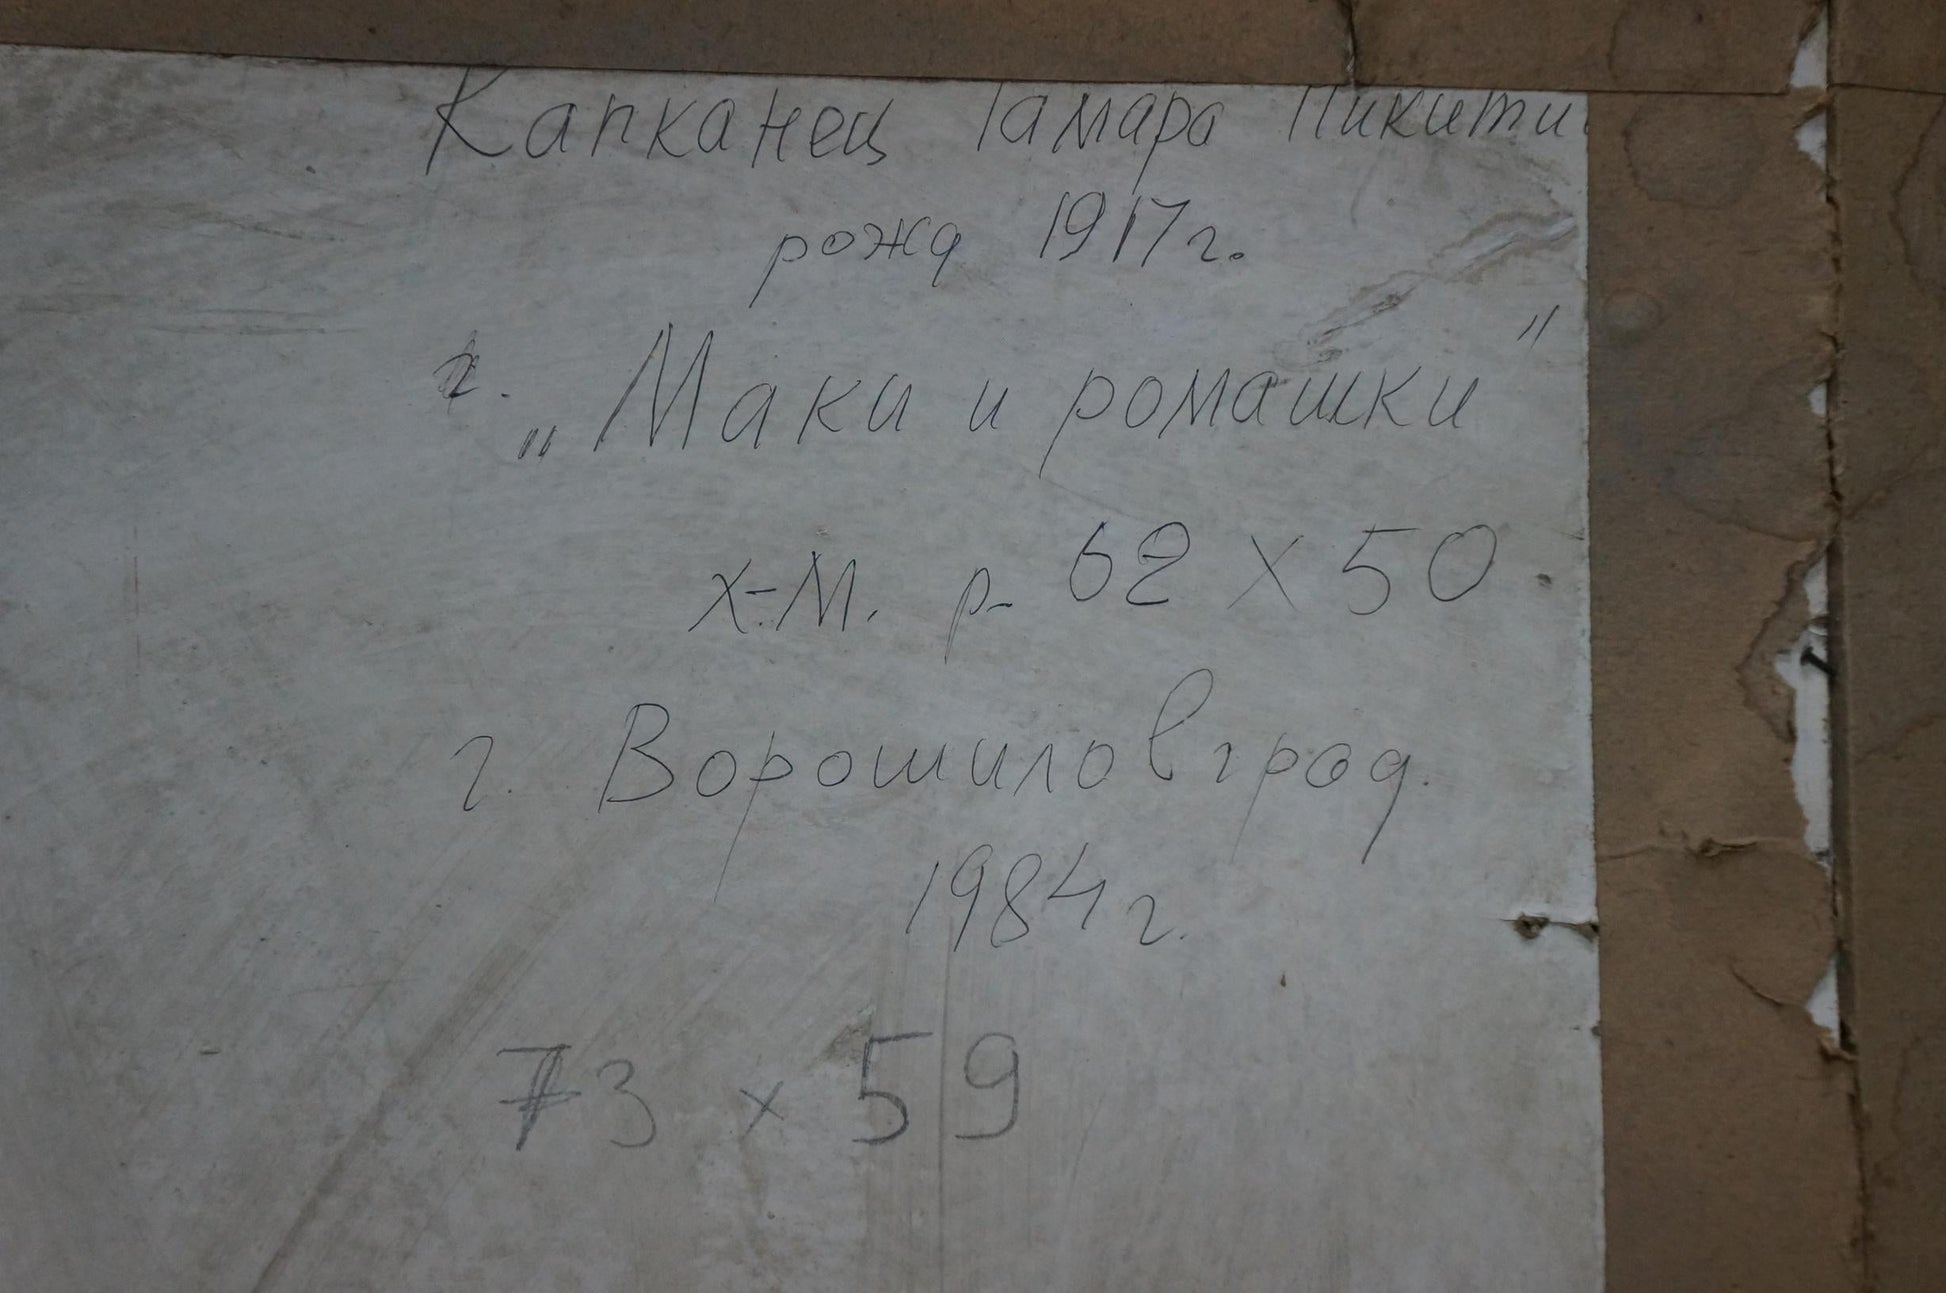 Капканец Тамара Никити
рожд 1917г.
„Маки и ромашки"
х-м. р- 62 х 50
г. Ворошиловград.
1984 г.
73 х 59